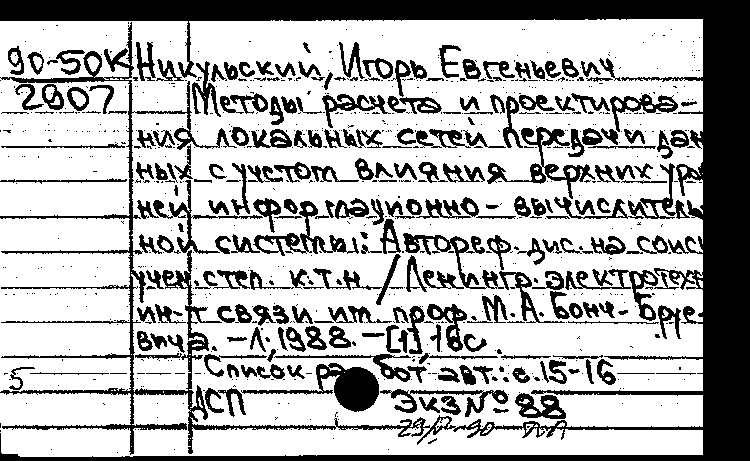 90-50К Никульский, Игорь Евгеньевич
2907 Методы расчета и проектирова-
ния локальных сетей передачи дан
ных с учетом влияния верхних уров
ней информационно-вычислитель
ной системы: Автореф. дис. на соиск
учен. степ. к.т.н. / Ленингр. электротехн
ин-т связи им. проф. М.А. Бонч-Бруе-
вича. -Л. 1988. -[1] 16с.
Список работ авт.: с.15-16
5
ДСП ЭКЗ № 88